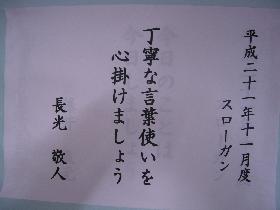 平成二十一年十一月度
スローガン
丁寧な言葉使いを
心掛けましょう
長光 敬人